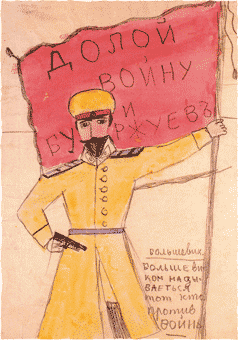 ДОЛОЙ
ВОЙНУ
И
БУРЖУЕВЪ
большевик
БОЛЬШЕВИ
КОМ НАЗЫ
ВАЕТЬСЯ
ТОТ КТО
ПРОТИВ
ВОЙНЫ